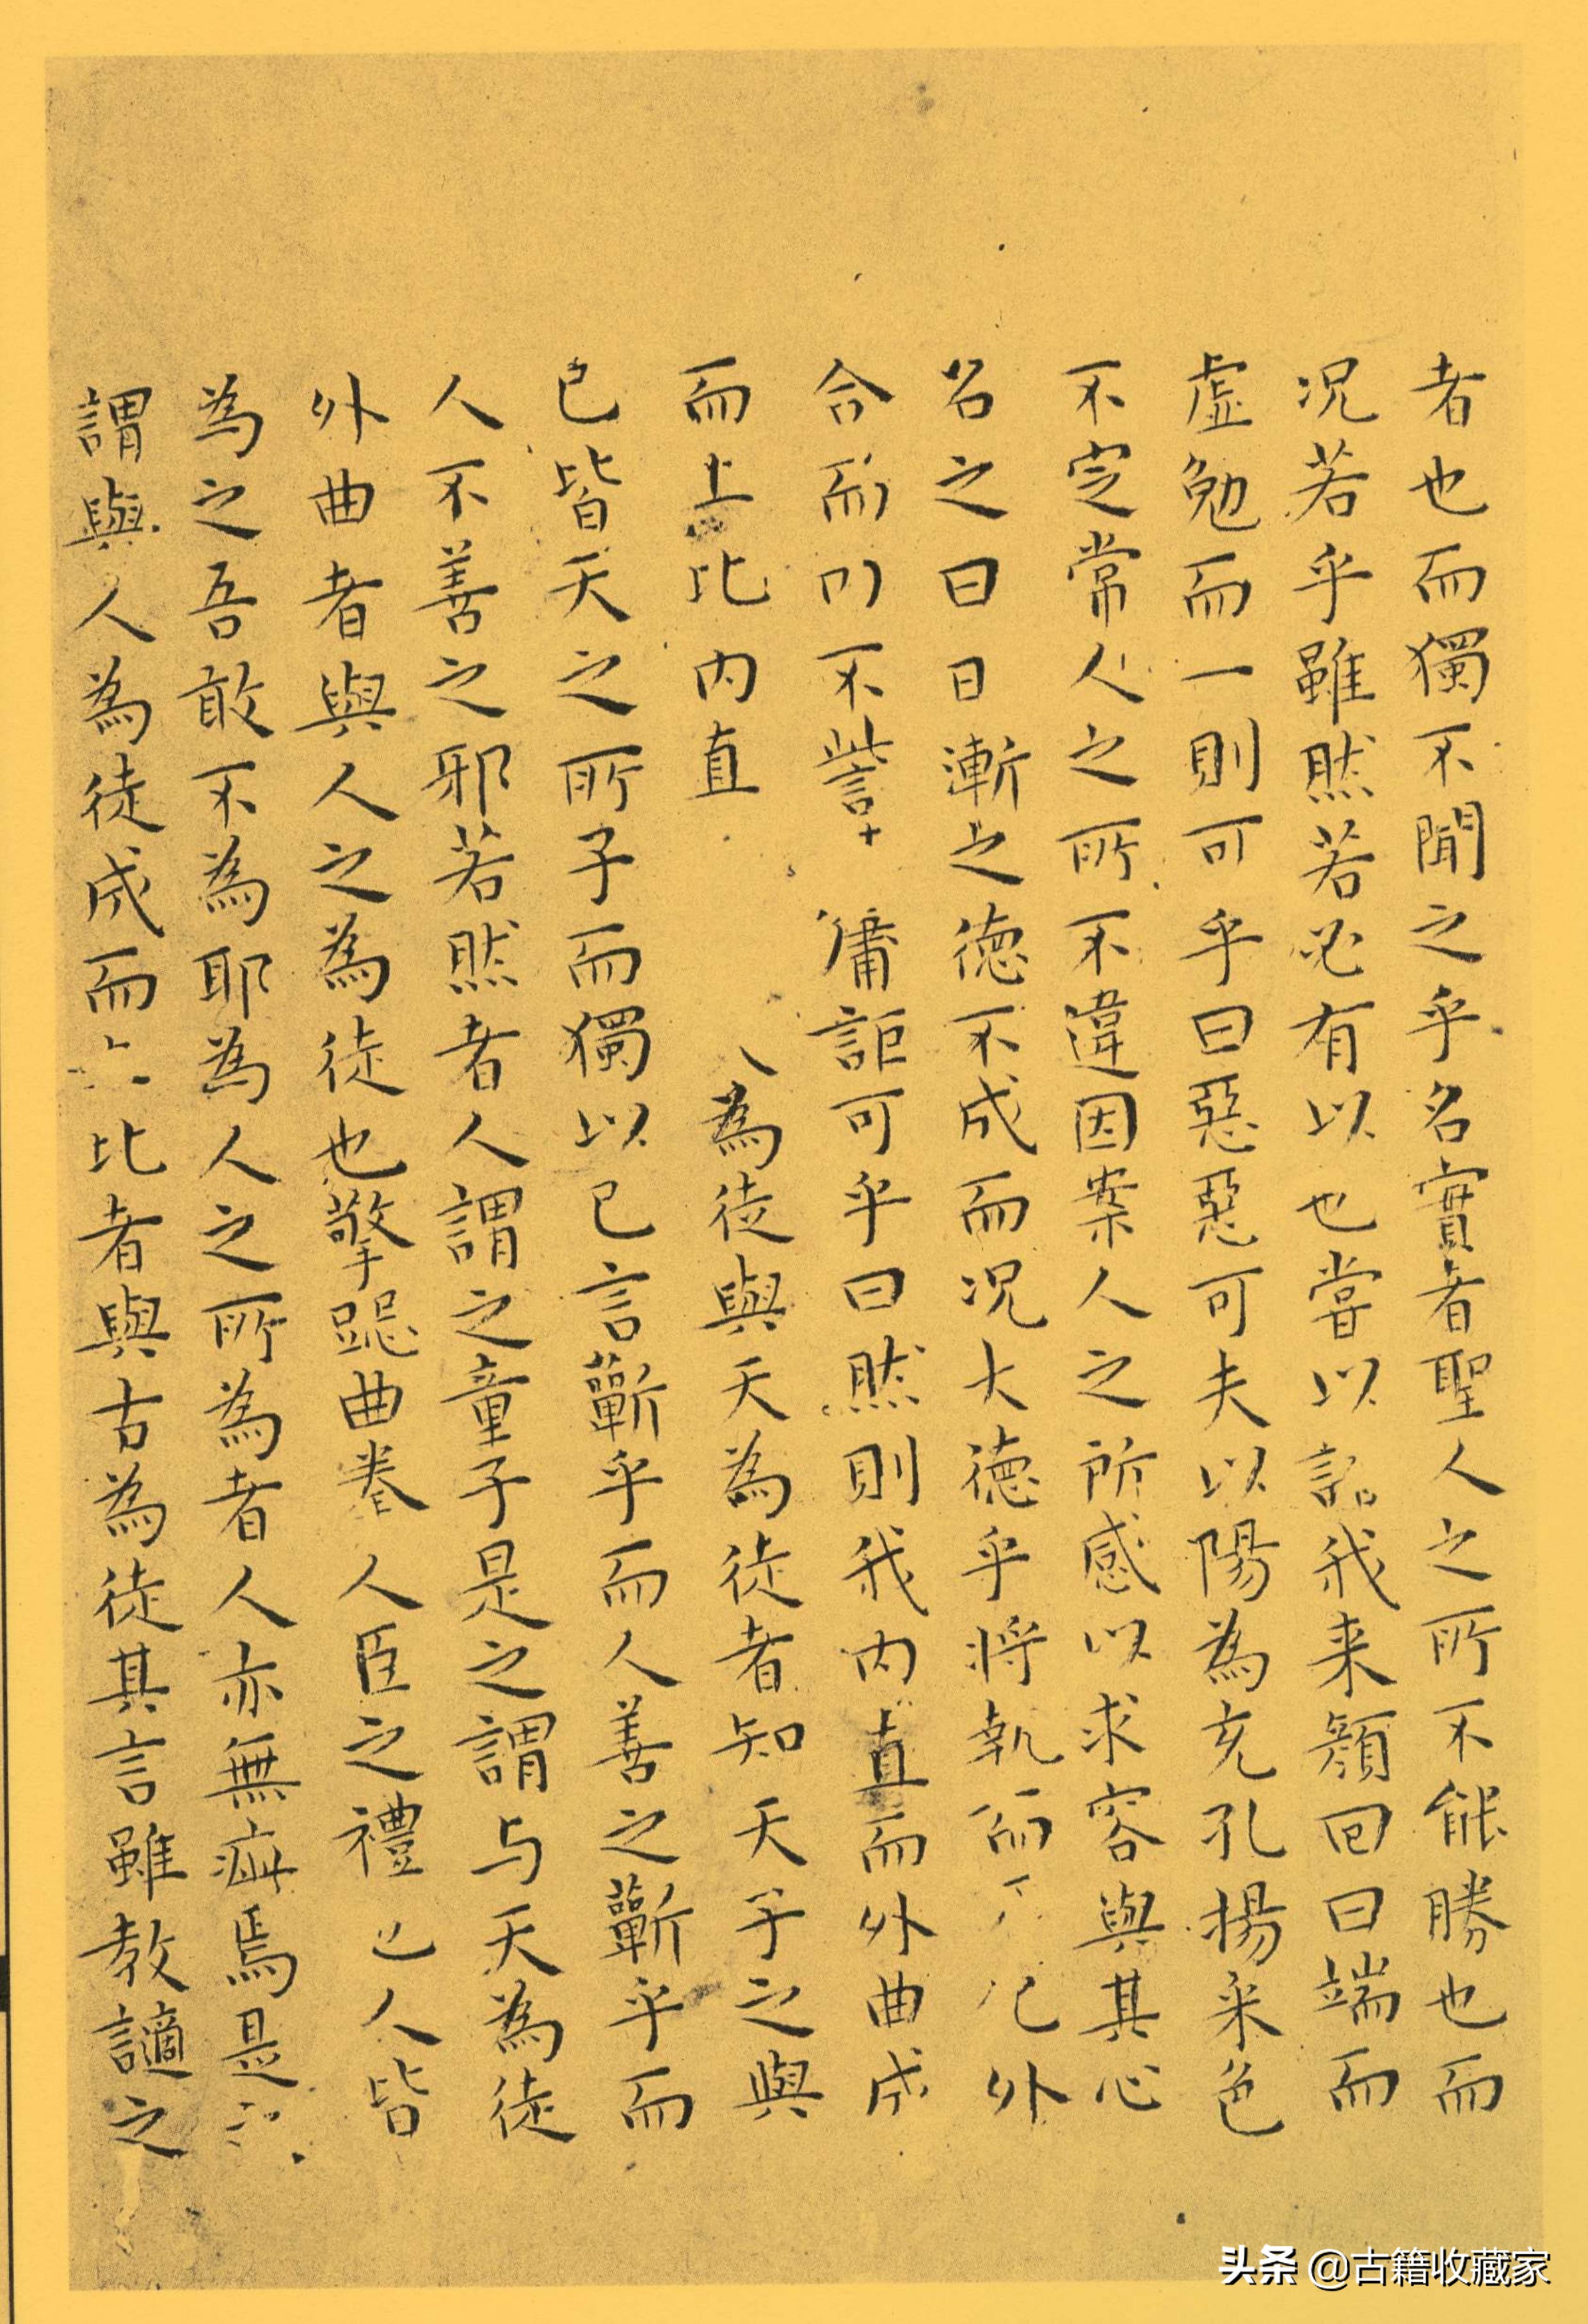 者也而獨不聞之乎名實者聖人之所不能勝也而
况若乎雖然若必有以也嘗以語我来顏回曰端而
虛勉而一則可乎曰惡惡可夫以陽為充孔揚采色
不定常人之所不違因案人之所感以求容與其心
名之曰日漸之德不成而况大德乎將執而不化外
合而內不訾 庸詎可乎曰然則我内直而外曲成
而上比内直 為徒與天為徒者知天子之與
已皆天之所子而獨以已言蘄乎而人善之蘄乎而
人不善之邪若然者人謂之童子是之謂与天為徒
外曲者與人之為徒也擎跽曲拳人臣之禮也人皆
為之吾敢不為耶為人之所為者人亦無疵焉是
謂與人為徒成而上比者與古為徒其言雖教讁之
头条 @古籍收藏家